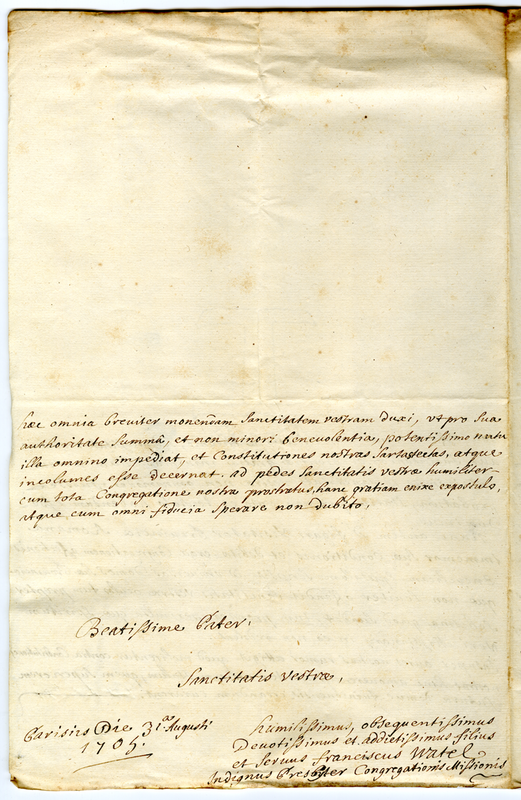 hæc omnia breviter monendam Sanctitatem vestram duxi, vt pro sua
authoritate summâ, et non minori benevolentia, potentissimo nutu
illa omnino impediat, et Constitutiones nostras Sartas tectas, atque
incolumes esse decernat. ad pedes Sanctitatis vestræ humiliter
cum tota Congregatione nostra prostratus, hanc gratiam enixe expostulo,
atque cum omni fiducia sperare non dubito,
Beatissime Pater,
Sanctitatis vestræ,
Parisiis Die 31.as Augusti
1705.
humilissimus, obsequentissimus
Devotissimus et addictissimus filius
et servus franciscus Watel
Indignus Presbyter Congregationis Missionis